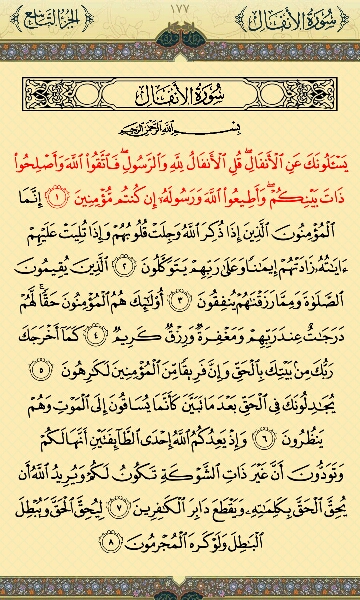 سُورَةُ الأَنفَال ١٧٧ الجُزءُ التَّاسِع
سُورَةُ الأَنفَال
بِسْمِ اللَّهِ الرَّحْمَٰنِ الرَّحِيمِ
يَسْـَٔلُونَكَ عَنِ ٱلْأَنفَالِ ۖ قُلِ ٱلْأَنفَالُ لِلَّهِ وَٱلرَّسُولِ ۖ فَٱتَّقُوا۟ ٱللَّهَ وَأَصْلِحُوا۟
ذَاتَ بَيْنِكُمْ ۖ وَأَطِيعُوا۟ ٱللَّهَ وَرَسُولَهُۥٓ إِن كُنتُم مُّؤْمِنِينَ ١ إِنَّمَا
ٱلْمُؤْمِنُونَ ٱلَّذِينَ إِذَا ذُكِرَ ٱللَّهُ وَجِلَتْ قُلُوبُهُمْ وَإِذَا تُلِيَتْ عَلَيْهِمْ
ءَايَٰتُهُۥ زَادَتْهُمْ إِيمَٰنًا وَعَلَىٰ رَبِّهِمْ يَتَوَكَّلُونَ ٢ ٱلَّذِينَ يُقِيمُونَ
ٱلصَّلَوٰةَ وَمِمَّا رَزَقْنَٰهُمْ يُنفِقُونَ ٣ أُو۟لَٰٓئِكَ هُمُ ٱلْمُؤْمِنُونَ حَقًّا ۚ لَّهُمْ
دَرَجَٰتٌ عِندَ رَبِّهِمْ وَمَغْفِرَةٌ وَرِزْقٌ كَرِيمٌ ٤ كَمَآ أَخْرَجَكَ
رَبُّكَ مِنۢ بَيْتِكَ بِٱلْحَقِّ وَإِنَّ فَرِيقًا مِّنَ ٱلْمُؤْمِنِينَ لَكَٰرِهُونَ ٥
يُجَٰدِلُونَكَ فِى ٱلْحَقِّ بَعْدَ مَا تَبَيَّنَ كَأَنَّمَا يُسَاقُونَ إِلَى ٱلْمَوْتِ وَهُمْ
يَنظُرُونَ ٦ وَإِذْ يَعِدُكُمُ ٱللَّهُ إِحْدَى ٱلطَّآئِفَتَيْنِ أَنَّهَا لَكُمْ
وَتَوَدُّونَ أَنَّ غَيْرَ ذَاتِ ٱلشَّوْكَةِ تَكُونُ لَكُمْ وَيُرِيدُ ٱللَّهُ أَن
يُحِقَّ ٱلْحَقَّ بِكَلِمَٰتِهِۦ وَيَقْطَعَ دَابِرَ ٱلْكَٰفِرِينَ ٧ لِيُحِقَّ ٱلْحَقَّ وَيُبْطِلَ
ٱلْبَٰطِلَ وَلَوْ كَرِهَ ٱلْمُجْرِمُونَ ٨